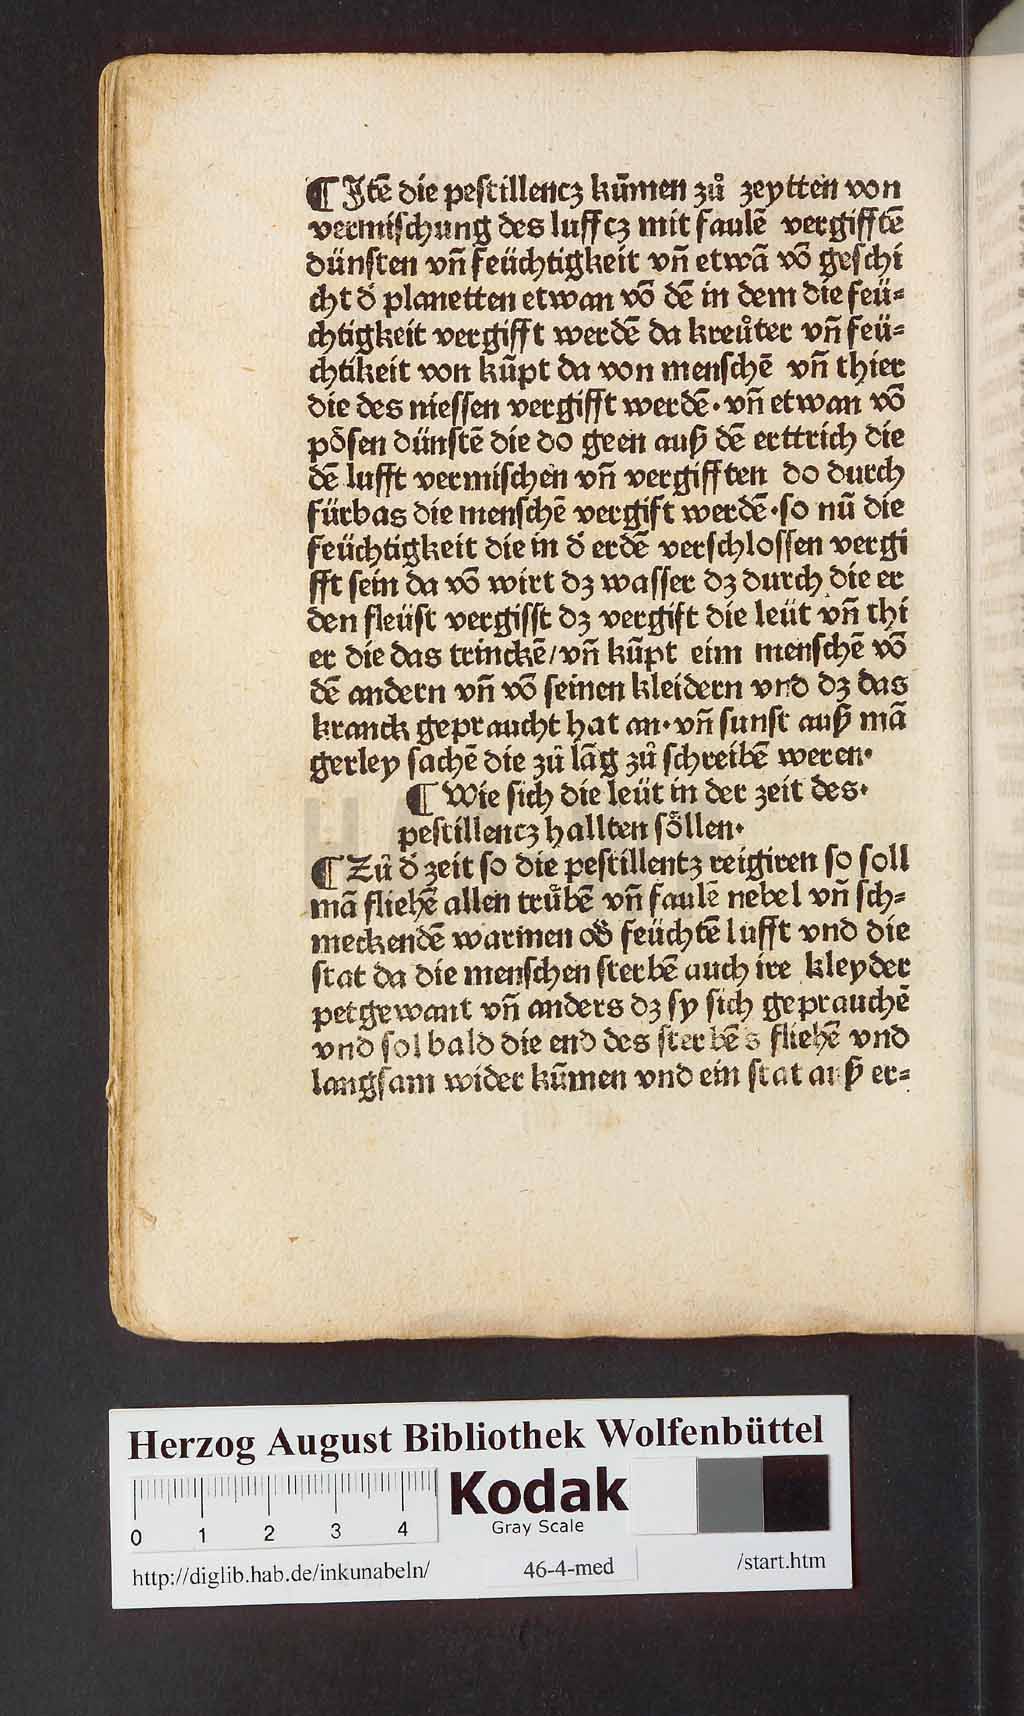 ¶ Jtē die pestillencz kūmen zů zeytten von
vermischung des lufftz mit faulē vergifftē
dünsten vñ feüchtigkeit vñ etwā vō geschi
cht d̄ planetten etwan vō dē in dem die feü⸗
chtigkeit vergifft werdē da kreůter vñ feü⸗
chtikeit von kūpt da von menschē vñ thier
die des niessen vergifft werdē· vñ etwan vō
pösen dünstē die do geen auß dē erttrich die
dē lufft vermischen vñ vergifften do durch
fürbas die menschē vergift werdē·so nū die
feüchtigkeit die in d̄ erdē verschlossen vergi
fft sein da vō wirt dz wasser dz durch die er
den fleüst vergifft dz vergift die leüt vñ thi
er die das trinckē/vñ kūpt eim menschē vō
dē andern vñ vō seinen kleidern vnd dz das
kranck gepraucht hat an· vñ sunst auß mā
gerley sachē die zů lāg zů schreibē weren·
¶ Wie sich die leüt in der zeit des·
pestillencz hallten söllen·
¶ Zů d̄ zeit so die pestillentz reigiren so soll
mā fliehē allen trůbē vñ faulē nebel vñ sch⸗
meckendē warmen od̄ feüchtē lufft vnd die
stat da die menschen sterbē auch ire kleyder
petgewant vñ anders dz sy sich geprauchē
vnd sol bald die end des sterbēs fliehē vnd
langsam wider kūmen vnd ein stat auß er⸗
HAB
Herzog August Bibliothek Wolfenbüttel
0 1 2 3 4
Kodak
Gray Scale
http://diglib.hab.de/inkunabeln/ 46-4-med /start.htm